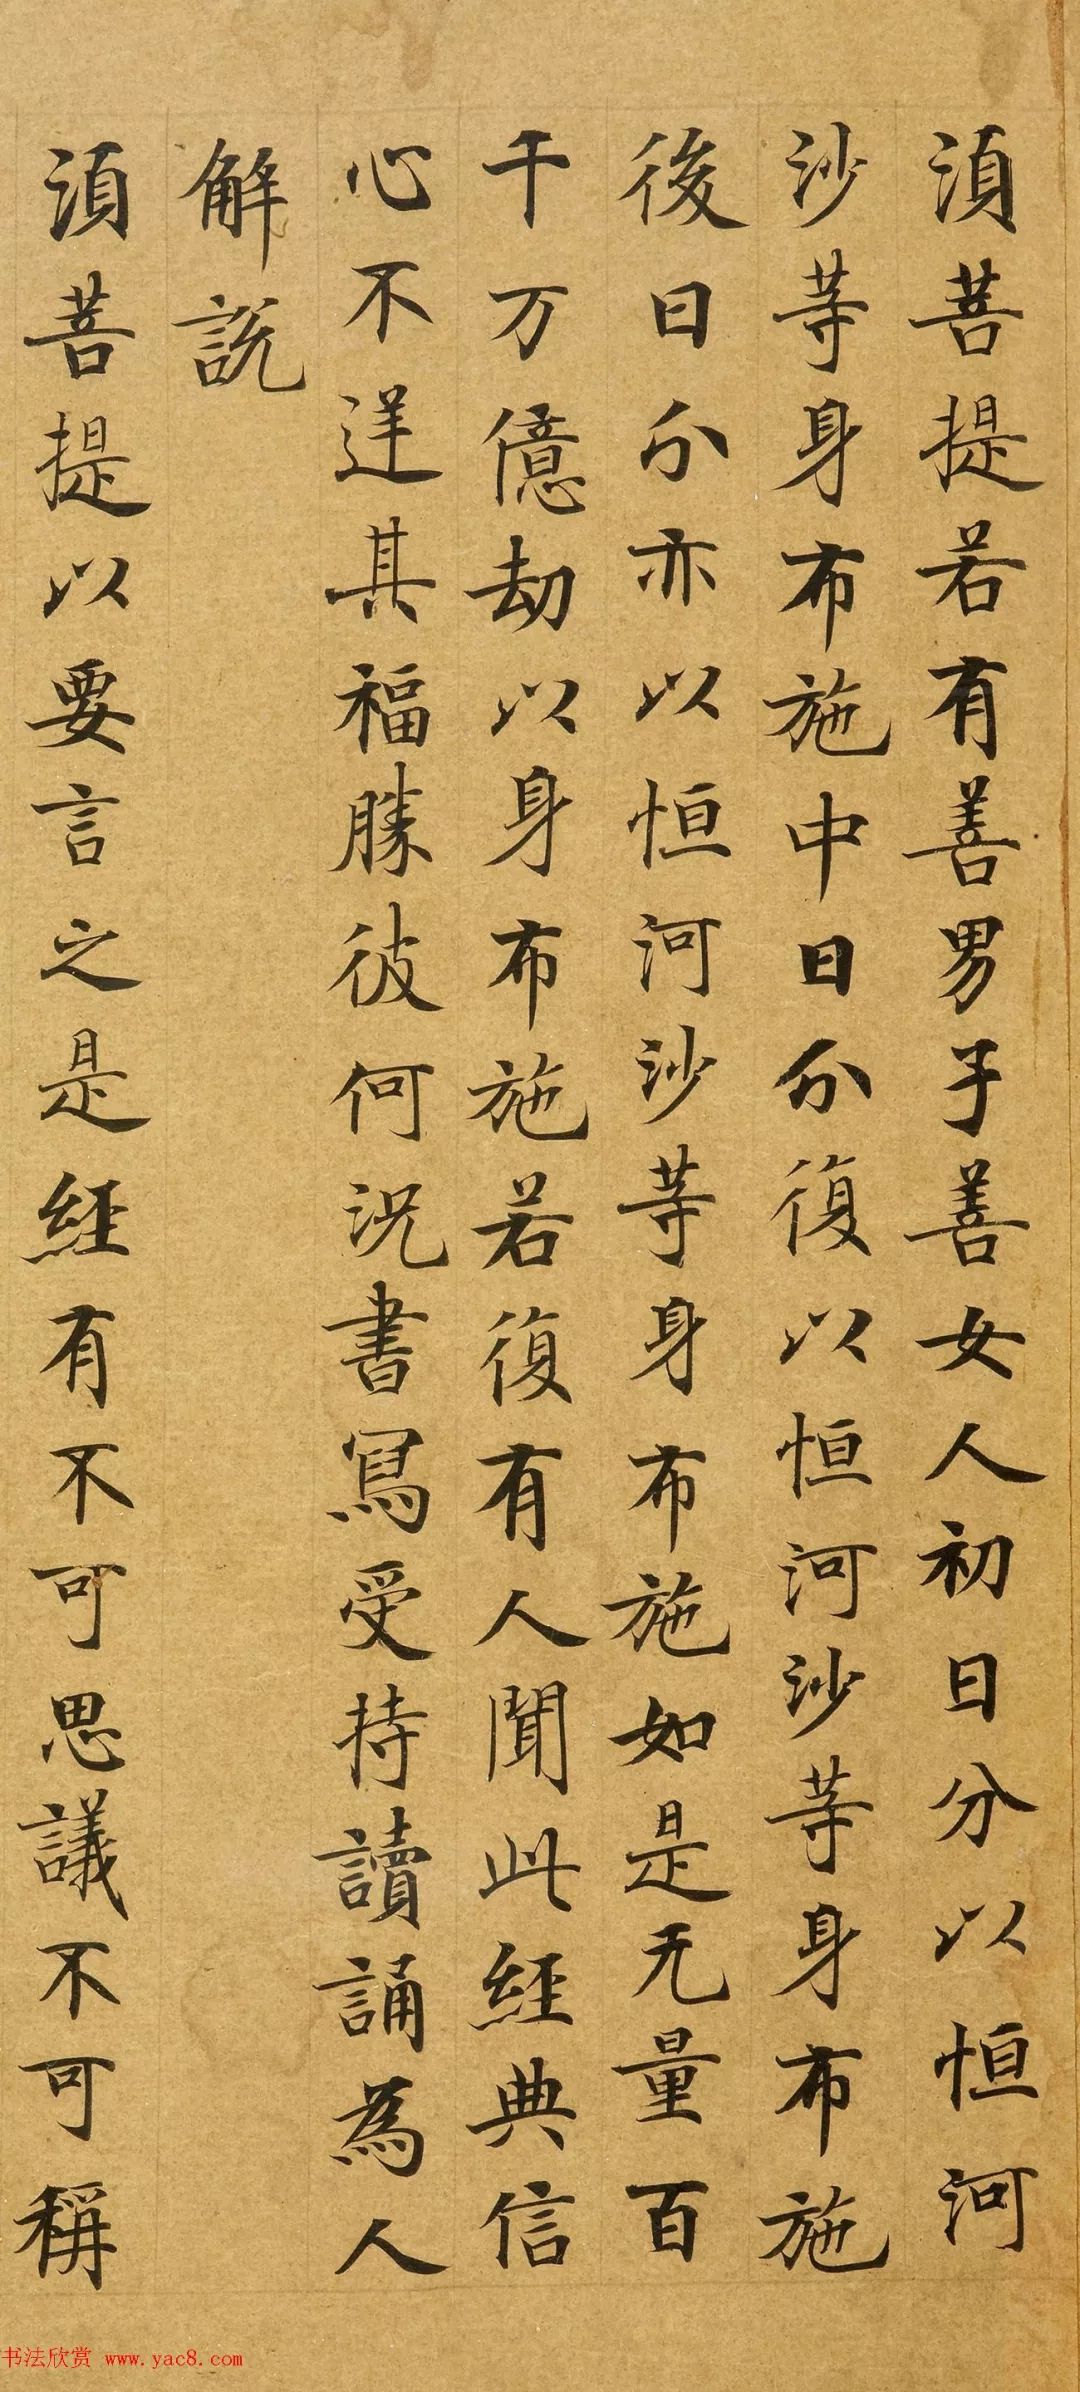 須菩提若有善男子善女人初日分以恒河
沙等身布施中日分復以恒河沙等身布施
後日分亦以恒河沙等身布施如是无量百
千万億劫以身布施若復有人聞此經典信
心不逆其福勝彼何況書寫受持讀誦為人
解説
須菩提以要言之是經有不可思議不可稱
书法欣赏 www.yac8.com